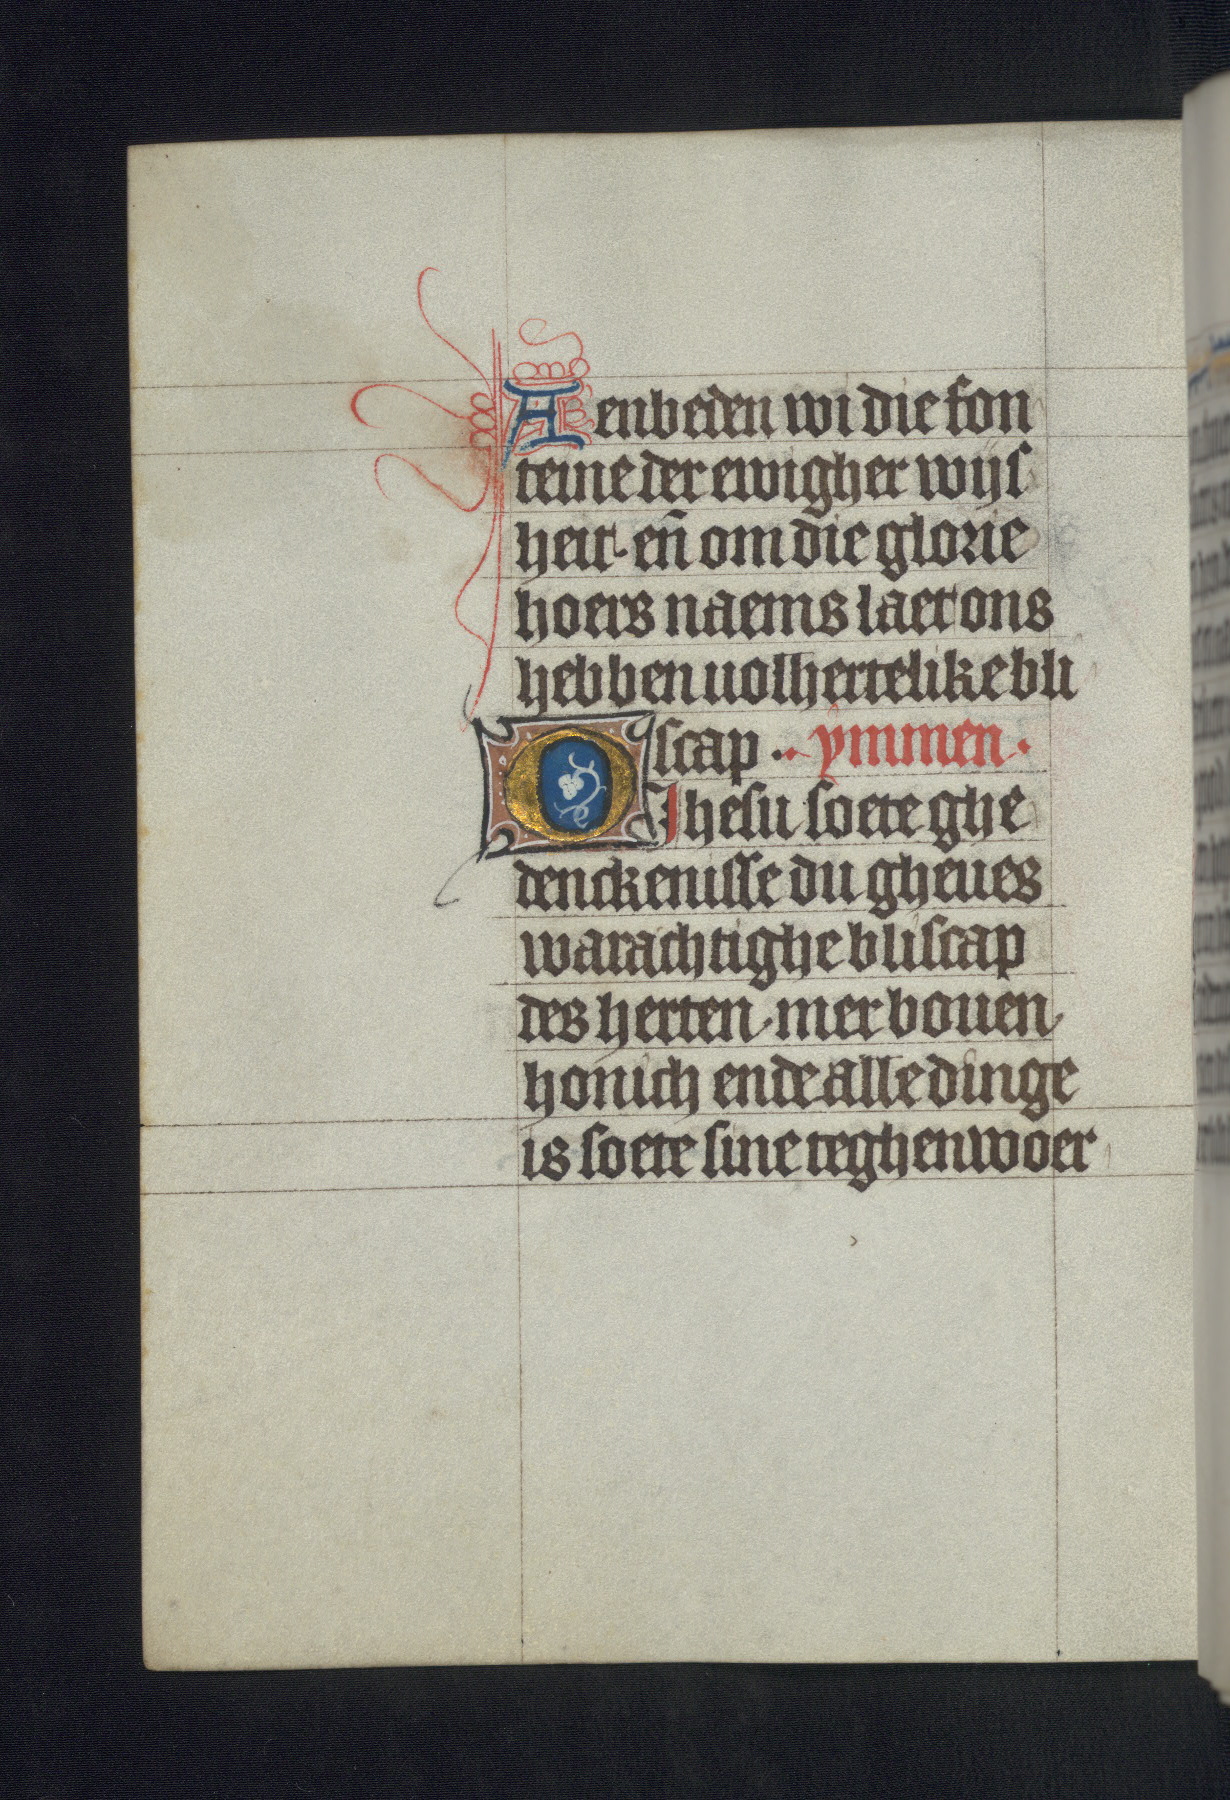 Aenbeden wi die fon
teine der ewigher wijs
heit. en̄ om die glorie
hoers naems laet ons
hebben uolhertelike bli
scap .. ymmen .
O Ihesu soete ghe
denckenisse du gheues
warachtighe bliscap
des herten. mer bouen
honich ende alle dinge
is soete sine teghenwoer